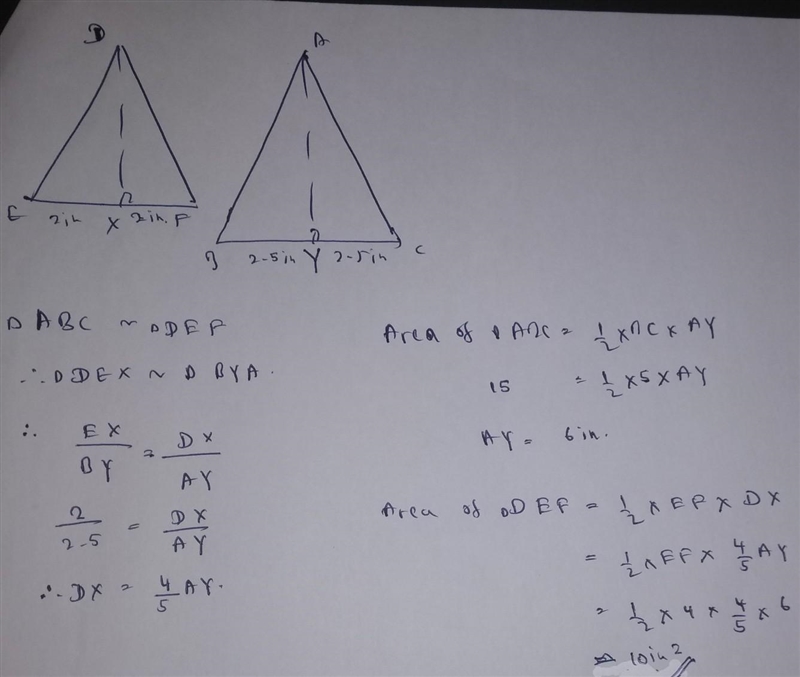 D
A
E 2in X 2in. F
B 2-5in Y 2-5in C
Δ ABC ~ ΔDEF
∴ ΔDEX ~ Δ BYA.
∴ EX/BY = DX/AY
2/2-5 = DX/AY
∴ DX = 4/5 AY.
Area of Δ ABC = 1/2 x BC x AY
15 = 1/2 x 5 x AY
AY = 6in.
Area of ΔDEF = 1/2 x EF x DX
= 1/2 x EF x 4/5 AY
= 1/2 x 4 x 4/5 x 6
= 10in²